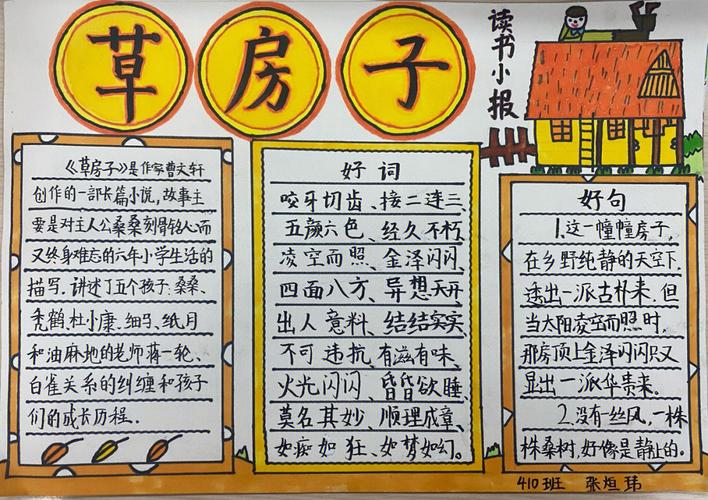 草房子
读书小报
《草房子》是作家曹文轩
创作的一部长篇小说,故事主
要是对主人公桑桑刻骨铭心而
又终身难忘的六年小学生活的
描写.讲述了五个孩子.桑桑、
秃鹤.杜小康.细马.纸月
和油麻地的老师蒋一轮、
白雀关系的纠缠和孩子
们的成长历程.
好词
咬牙切齿、接二连三、
五颜六色、经久不朽
凌空而照、金泽闪闪、
四面八方、异想天开
出人意料、结结实实
不可违抗、有滋有味、
火光闪闪、昏昏欲睡
莫名其妙、顺理成章、
如痴如狂、如梦如幻。
好句
1.这一幢幢房子,
在乡野纯静的天空下
透出一派古朴来.但
当太阳凌空而照时,
那房顶上金泽闪闪只又
显出一派华贵来。
2.没有一丝风,一株
株桑树,好像是静止的。
410班 张烜玮